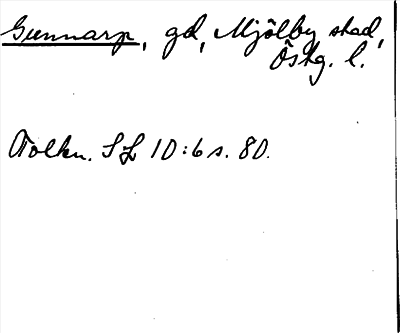 Gunnarp, gd, Mjölby stad,
Östg. l.
Tolkn. SL 10:6 s. 80.